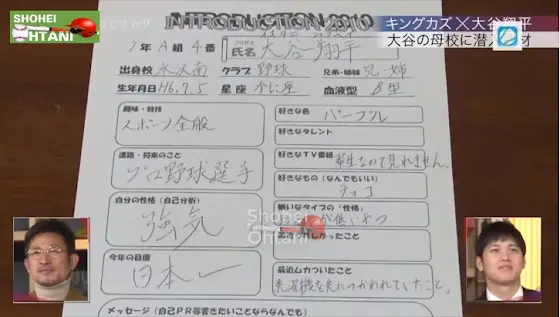 SHOHEI
OHTANI
キングカズ×大谷翔平
大谷の母校に潜入
INTRODUCTION 2010
1年 A組 4番
氏名 大谷 翔平
出身校 水沢南 クラブ 野球 兄弟・姉妹 兄・姉
生年月日 H6.7.5 星座 かに座 血液型 B型
趣味・特技
スポーツ全般
好きな色
パープル
好きなタレント
進路・将来のこと
プロ野球選手
好きなTV番組
寮生なので見れません。
好きなもの(なんでもいい)
チョコ
自分の性格(自己分析)
強気
嫌いなタイプの「性格」
Shohei
Ohtani
今年の目標
日本一
最近ムカついたこと
洗濯機を先につかわれていたこと。
メッセージ(自己PR等書きたいことならなんでも)